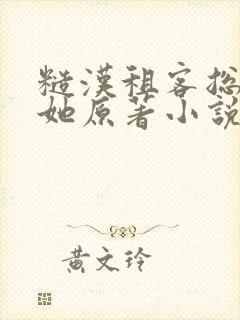 糙漢租客捴
她原著小說
黃文玲